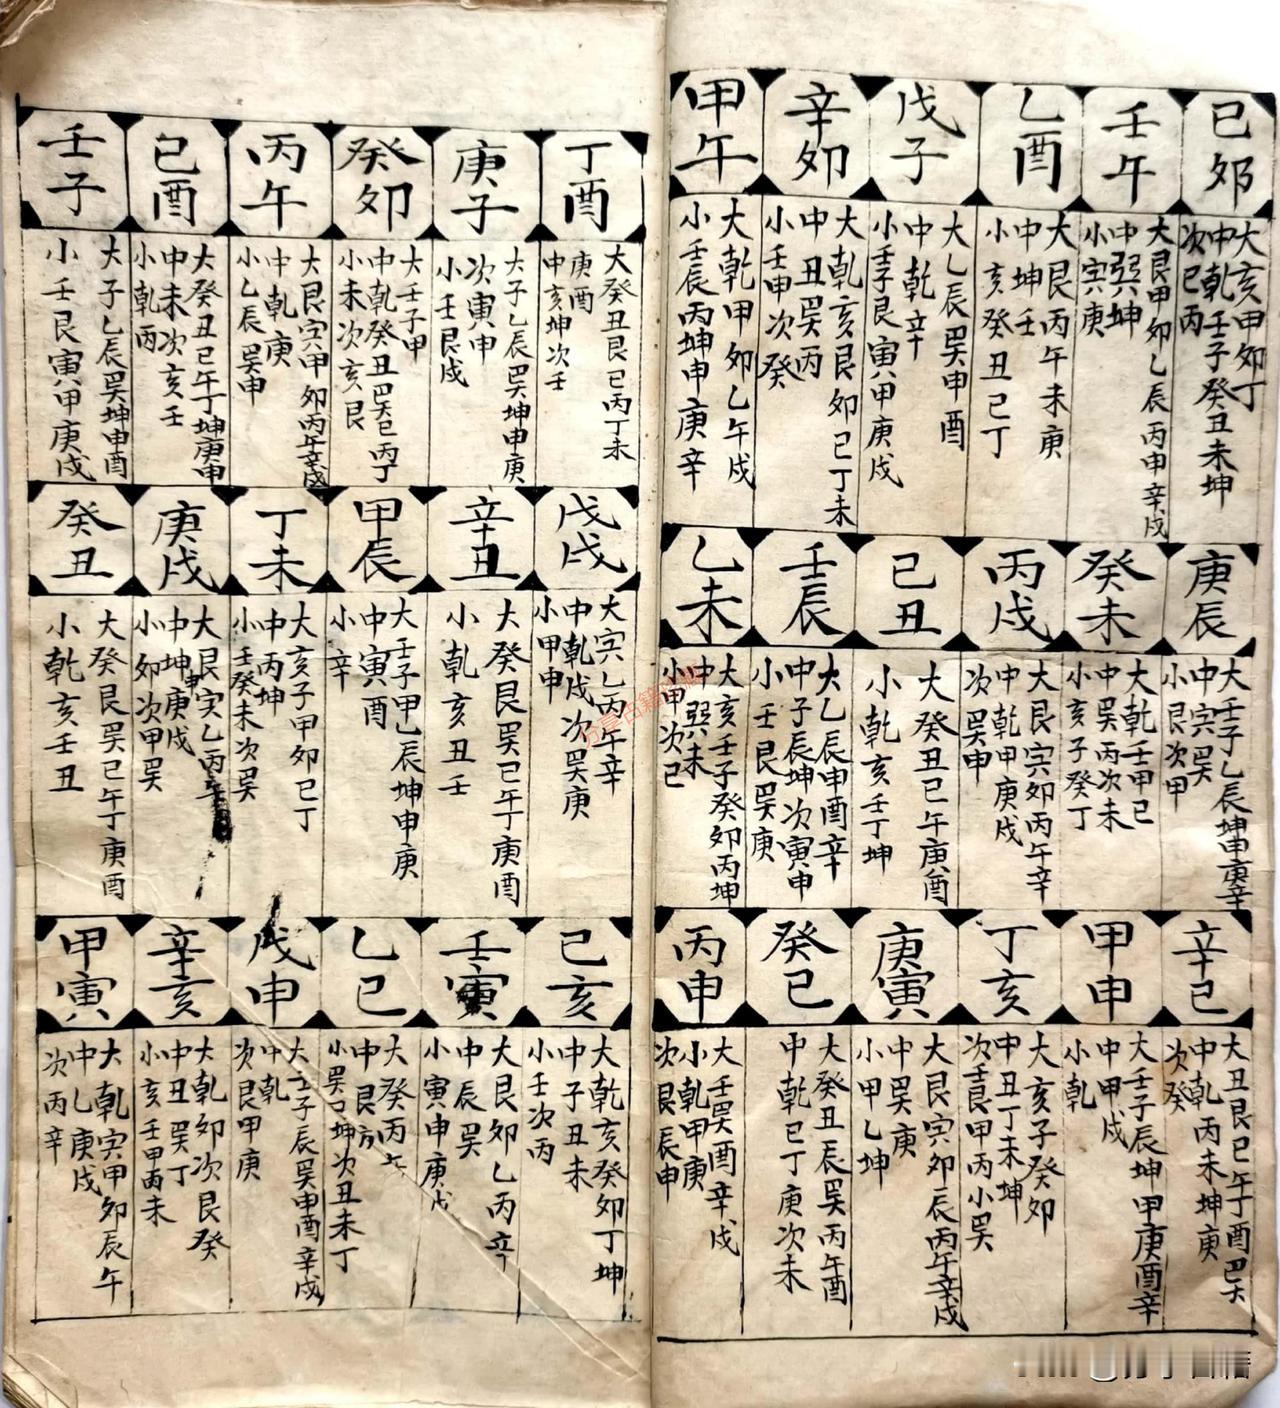 己卯
大亥甲卯丁
中乾壬子癸丑未坤
次巳丙
庚辰
大壬子乙辰坤申庚辛
中寅巽
小艮次甲
辛巳
大丑艮巳午丁酉
中乾丙未坤庚
次癸
壬午
大艮甲卯乙辰丙申辛戌
中巽坤
小寅庚
癸未
大乾壬甲巳
中巽丙次未
小亥子癸丁
甲申
大壬子辰坤甲庚酉辛
中甲戌
小乾
乙酉
大艮丙午未庚
中坤壬
小亥癸丑巳丁
丙戌
大艮寅卯丙午辛
中乾甲庚戌
次巽申
丁亥
大亥子癸卯
中丑丁未坤
次壬艮甲丙小巽
戊子
大乙辰巽申酉
中乾辛
小壬子艮寅甲庚戌
己丑
大癸丑巳午庚酉
小乾亥壬丁坤
庚寅
大艮寅卯辰丙午辛戌
中巽庚
小甲乙坤
辛卯
大乾亥艮卯巳丁未
中丑巽丙
小壬申次癸
壬辰
大乙辰申酉辛
中子辰坤次寅申
小壬艮巽庚
癸巳
大癸丑辰巽丙午酉
中乾巳丁庚次未
甲午
大乾甲卯乙午戌
小壬辰丙坤申庚辛
乙未
大亥壬子癸卯丙坤
中巽未
小甲次巳
丙申
大壬巽酉辛戌
小乾甲庚
次艮辰申
丁酉
大癸丑艮巳丙丁未
庚酉
中亥坤次壬
戊戌
大寅乙丙午辛
中乾戌次巽庚
小甲申
己亥
大乾亥癸卯丁坤
中子丑未
小壬次丙
庚子
大子乙辰巽坤申庚
次寅申
小壬艮戌
辛丑
大癸艮巽巳午丁庚酉
小乾亥丑壬
壬寅
大艮卯乙丙辛
中辰巽
小寅申庚戌
癸卯
大壬子甲
中乾癸丑巳丙丁
小未次亥艮
甲辰
大壬子甲乙辰坤申庚
中寅酉
小辛
乙巳
大癸丙
中艮
小巽坤次丑未丁
丙午
大艮寅甲卯丙午辛戌
中乾庚
小乙辰巽申
丁未
大亥子甲卯巳丁
中丙坤
小壬癸未次巽
戊申
大壬子辰巽申酉辛戌
中乾
次艮甲庚
己酉
大癸丑巳午丁坤庚申
中未次亥壬
小乾丙
庚戌
大艮寅乙丙辛
中坤申庚戌
小卯次甲巽
辛亥
大乾卯次艮癸
中丑巽丁
小亥壬甲丙未
壬子
大子乙辰巽坤申酉
小壬艮寅甲庚戌
癸丑
大癸艮巽巳午丁庚酉
小乾亥壬丑
甲寅
大乾寅甲卯辰午
中乙庚戌
次丙辛